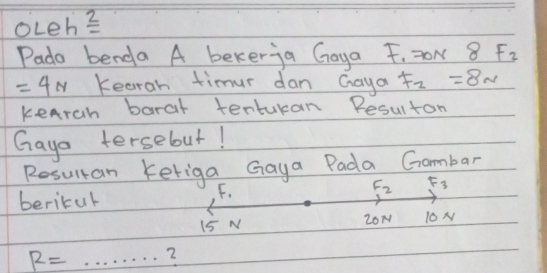 Oleh 2
Pada benda A bekerja Gaya F1 = 0N 8 F2
= 4N Kearah timur dan Gaya F2 = 8N
kearah barat tentukan Resultan
Gaya tersebut !
Resultan Ketiga Gaya Pada Gambar
berikut F1 F2 F3
15 N 20N 10 N
R = ........ ?